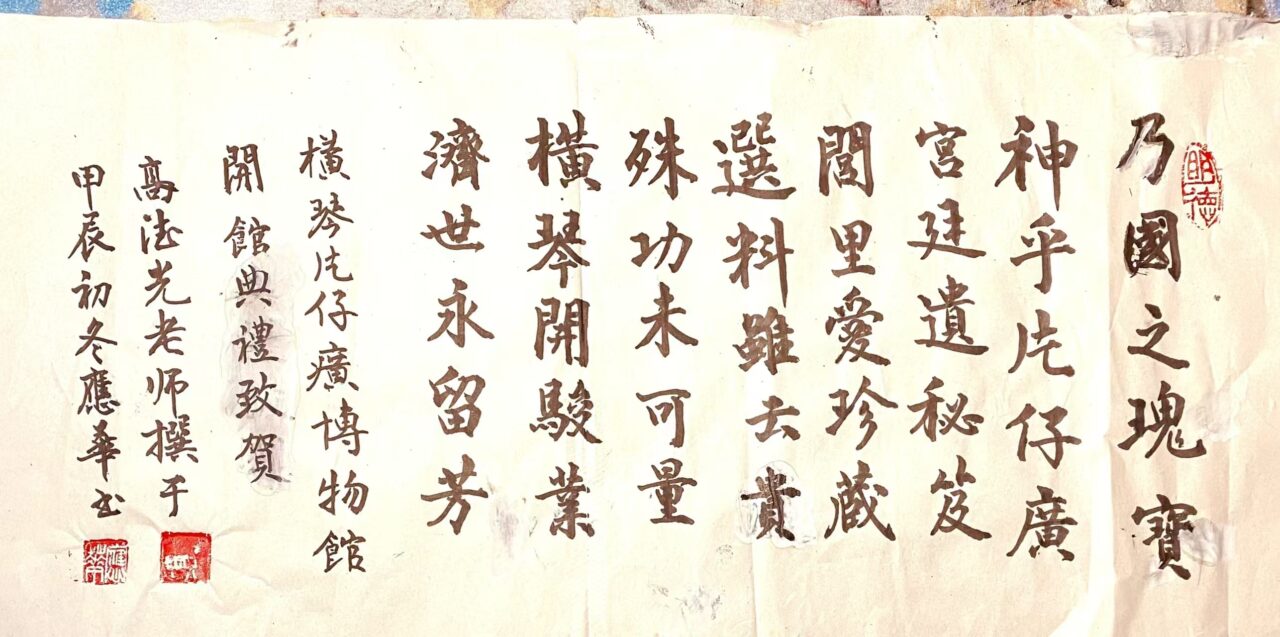 乃國之瑰寶
神乎片仔廣
宮廷遺秘笈
閭里愛珍藏
選料雖去貴
殊功未可量
橫琴開駿業
濟世永留芳
橫琴片仔癀博物館
開館典禮致賀
高法光老师撰于
甲辰初冬應華书